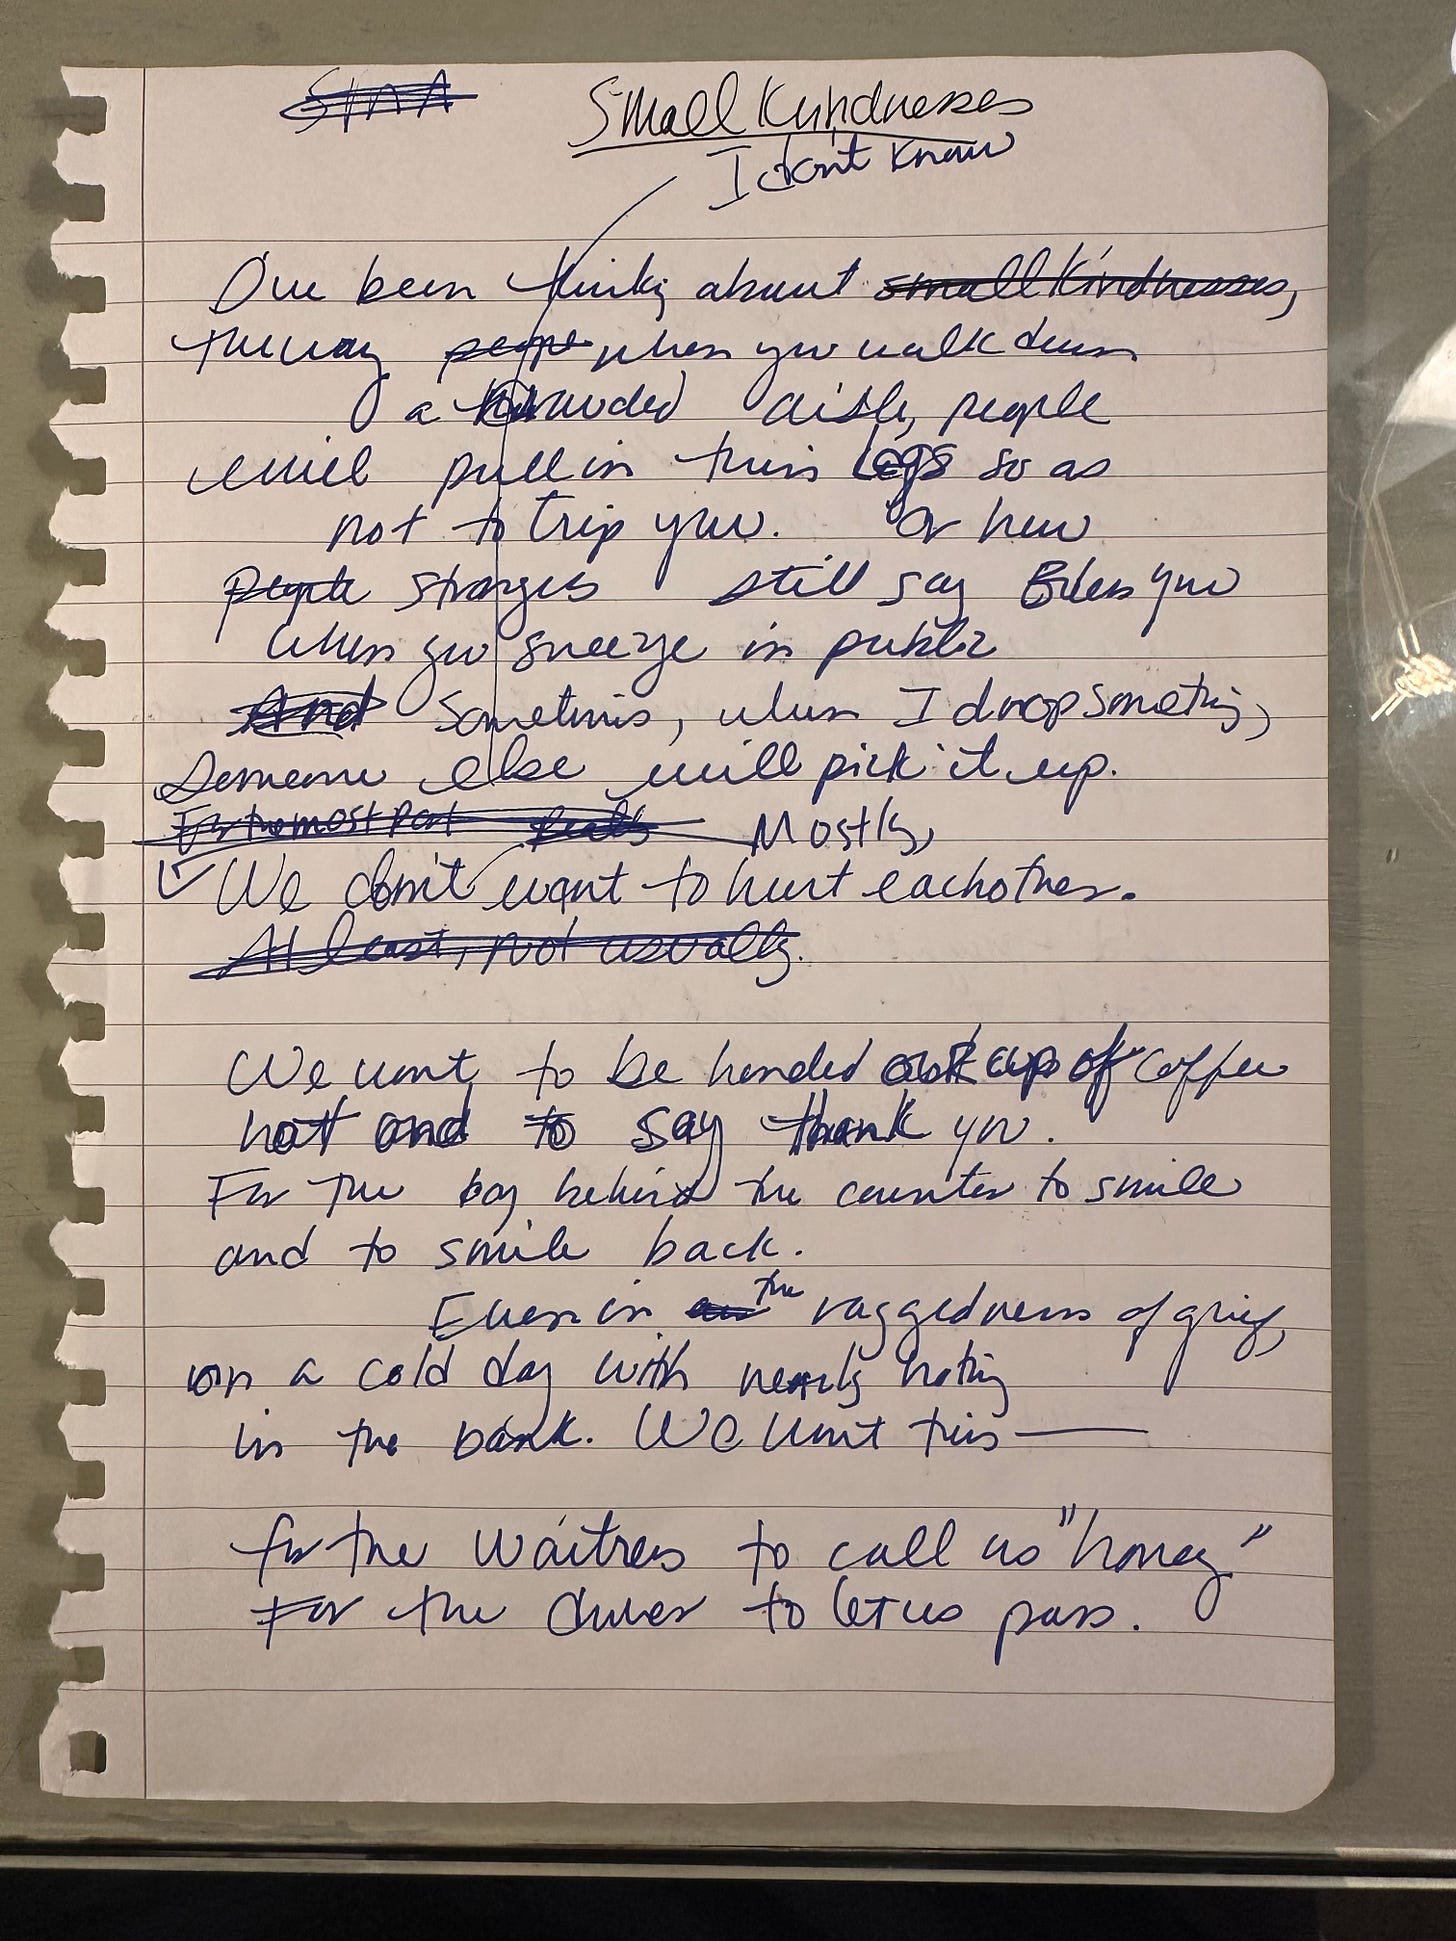 Small Kindnesses
I don't know
I've been thinking about small kindnesses,
the way people when you walk down
a crowded aisle, people
will pull in their legs so as
not to trip you. Or how
people strangers still say Bless you
when you sneeze in public
And Sometimes, when I drop something,
someone else will pick it up.
For the most part Mostly,
We don't want to hurt each other.
At least, not usually.
We want to be handed our cup of coffee
hot and to say thank you.
For the boy behind the counter to smile
and to smile back.
Even in the raggedness of grief,
on a cold day with nearly nothing
in the bank. We want this —
for the waitress to call us "honey"
For the driver to let us pass.